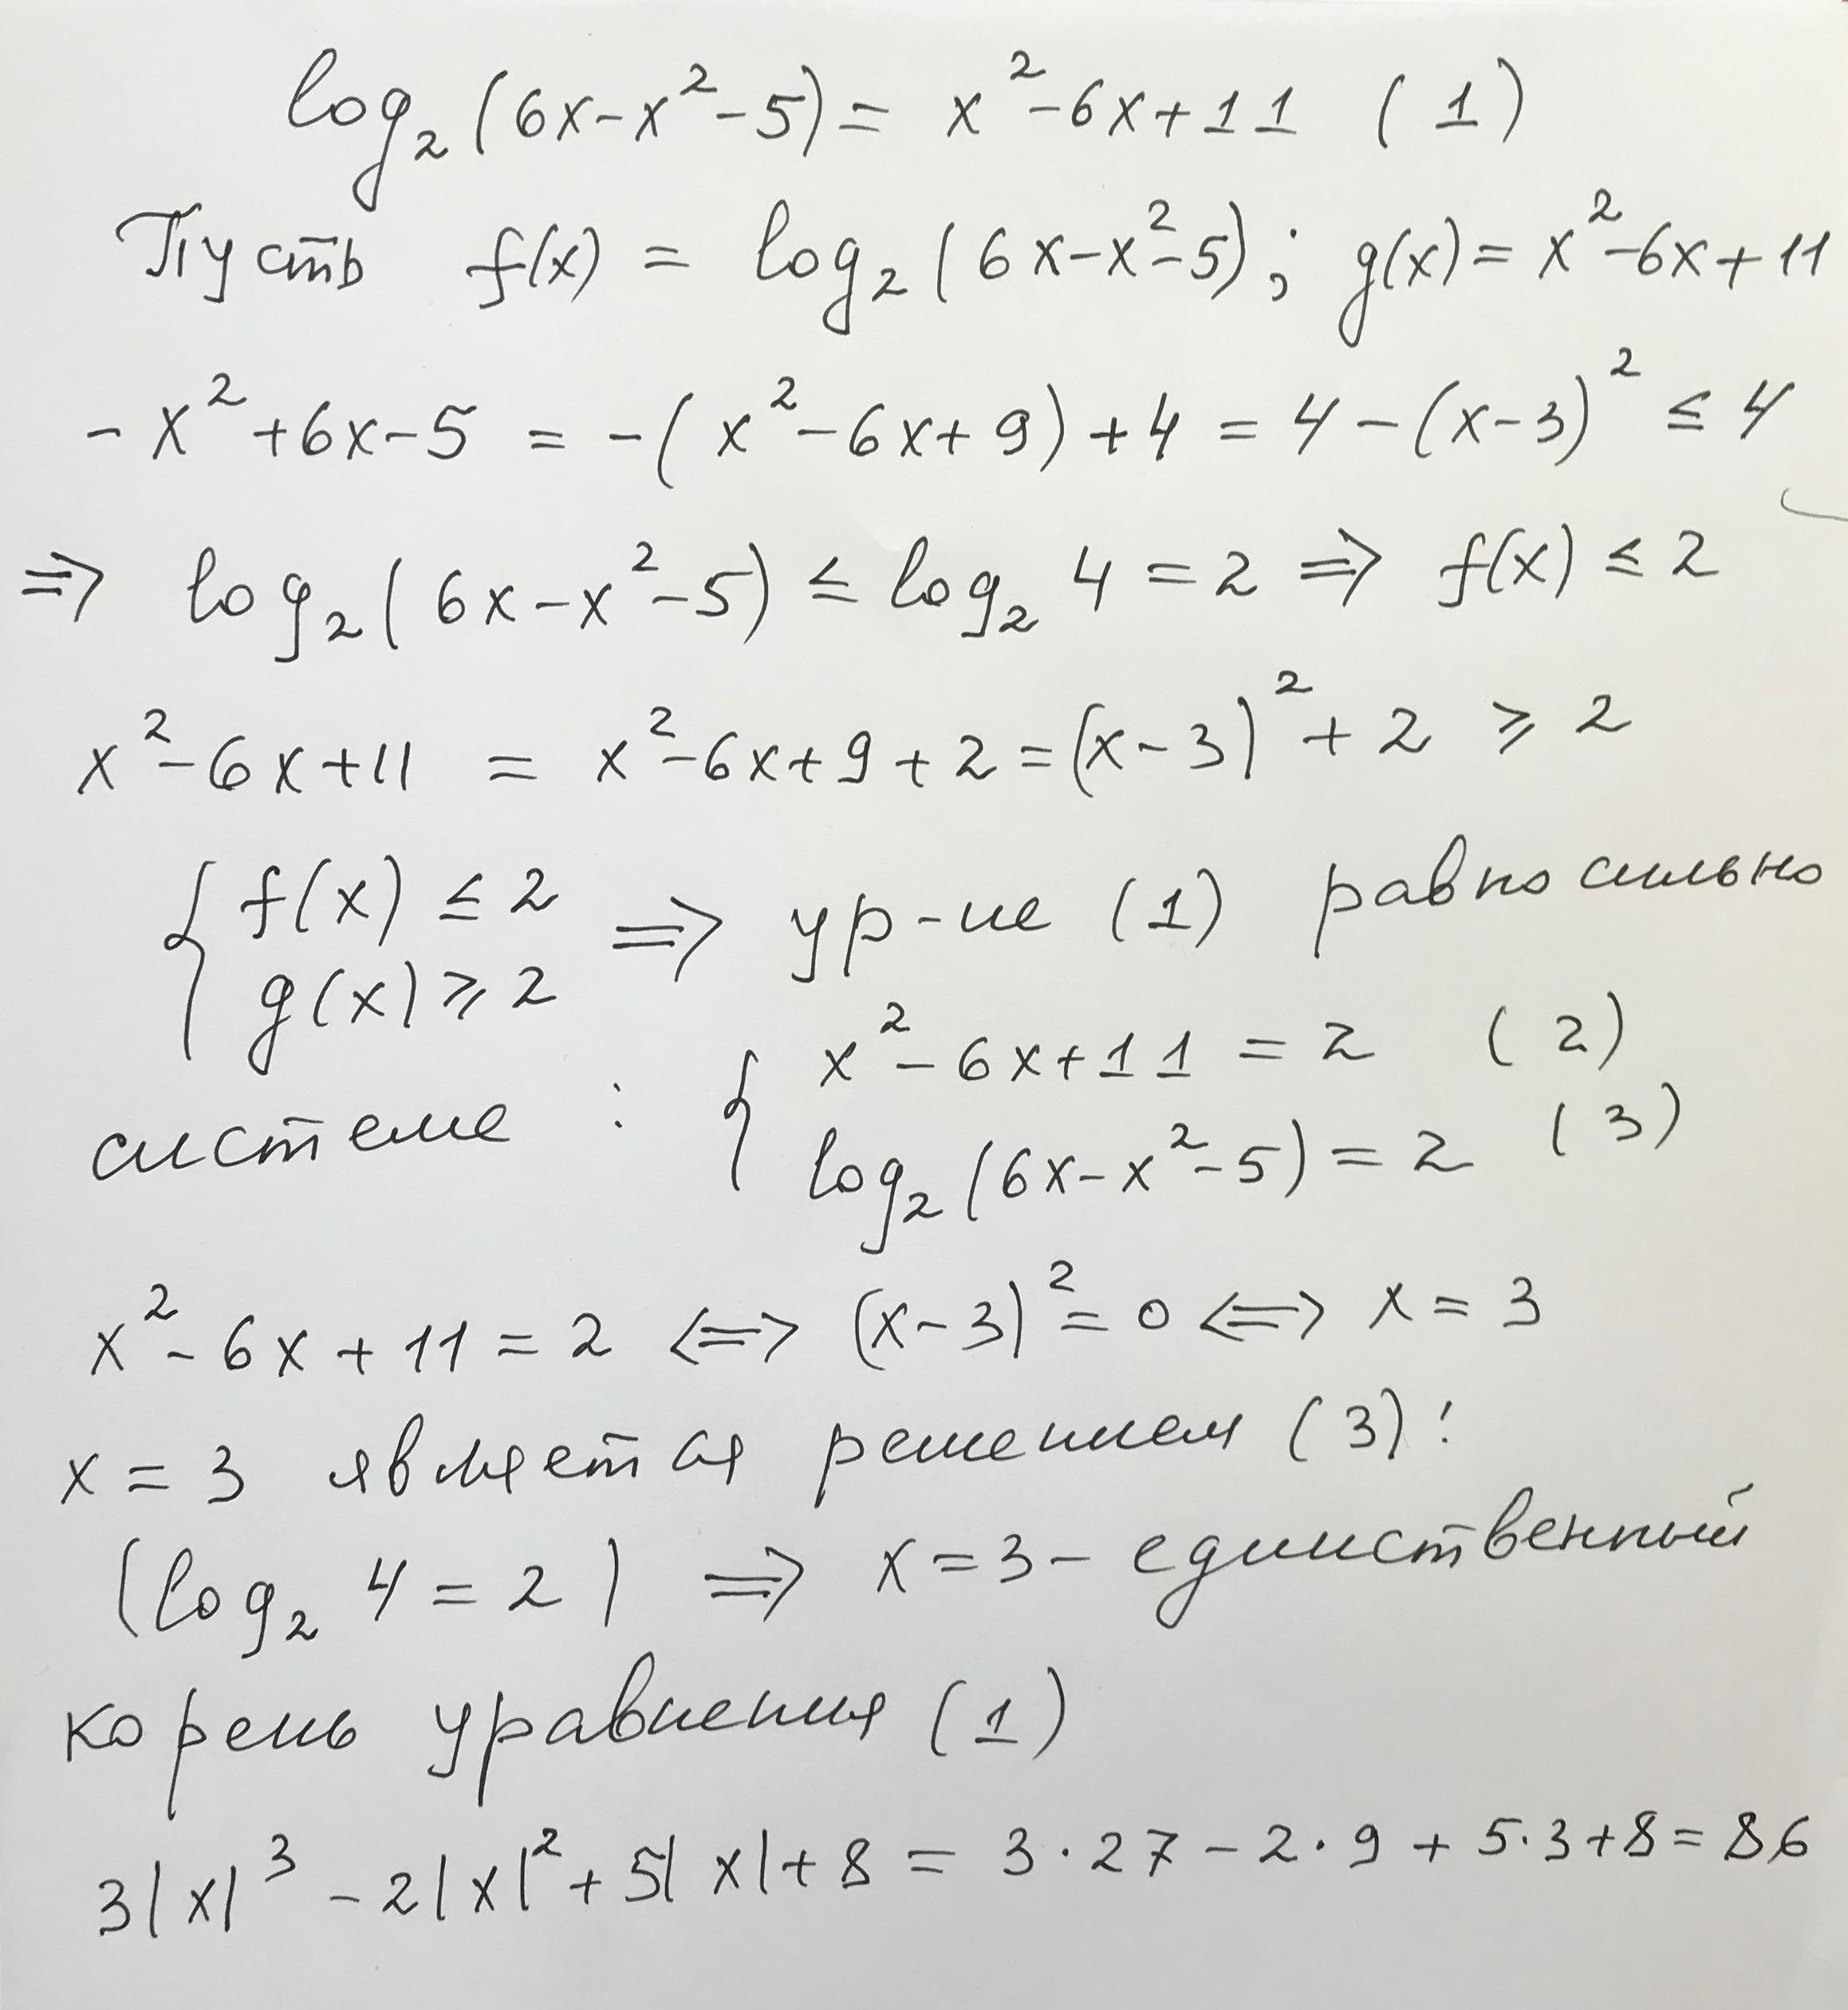 log₂(6x-x²-5) = x²-6x+11 (1)
Пусть f(x) = log₂(6x-x²-5); g(x) = x²-6x+11
-x²+6x-5 = -(x²-6x+9)+4 = 4-(x-3)² ≤ 4
⇒ log₂(6x-x²-5) ≤ log₂ 4 = 2 ⇒ f(x) ≤ 2
x²-6x+11 = x²-6x+9+2 = (x-3)²+2 ⩾ 2
{ f(x) ≤ 2
g(x) ⩾ 2 ⇒ ур-ие (1) равносильно
системе : { x²-6x+11 = 2 (2)
log₂(6x-x²-5) = 2 (3)
x²-6x+11 = 2 ⇔ (x-3)² = 0 ⇔ x = 3
x = 3 является решением (3)!
(log₂ 4 = 2) ⇒ x = 3 - единственный
корень уравнения (1)
3|x|³ - 2|x|² + 5|x| + 8 = 3·27 - 2·9 + 5·3 + 8 = 86